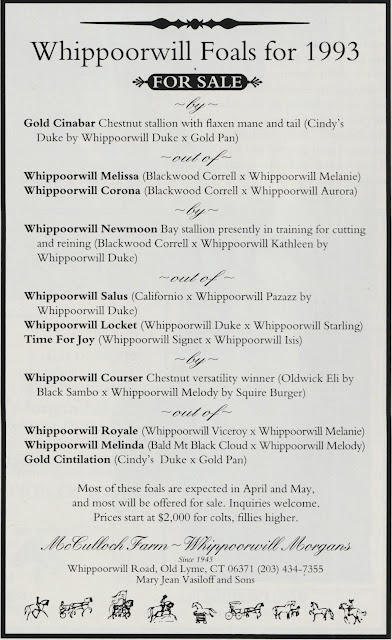 Whippoorwill Foals for 1993
FOR SALE
~by~
Gold Cinabar Chestnut stallion with flaxen mane and tail (Cindy's
Duke by Whippoorwill Duke x Gold Pan)
~out of~
Whippoorwill Melissa (Blackwood Correll x Whippoorwill Melanie)
Whippoorwill Corona (Blackwood Correll x Whippoorwill Aurora)
~by~
Whippoorwill Newmoon Bay stallion presently in training for cutting
and reining (Blackwood Correll x Whippoorwill Kathleen by
Whippoorwill Duke)
~out of~
Whippoorwill Salus (Californio x Whippoorwill Pazazz by
Whippoorwill Duke)
Whippoorwill Locket (Whippoorwill Duke x Whippoorwill Starling)
Time For Joy (Whippoorwill Signet x Whippoorwill Isis)
~by~
Whippoorwill Courser Chestnut versatility winner (Oldwick Eli by
Black Sambo x Whippoorwill Melody by Squire Burger)
~out of~
Whippoorwill Royale (Whippoorwill Viceroy x Whippoorwill Melanie)
Whippoorwill Melinda (Bald Mt Black Cloud x Whippoorwill Melody)
Gold Cintilation (Cindy's Duke x Gold Pan)
Most of these foals are expected in April and May,
and most will be offered for sale. Inquiries welcome.
Prices start at $2,000 for colts, fillies higher.
McCulloch Farm~Whippoorwill Morgans
Since 1943
Whippoorwill Road, Old Lyme, CT 06371 (203) 434-7355
Mary Jean Vasiloff and Sons